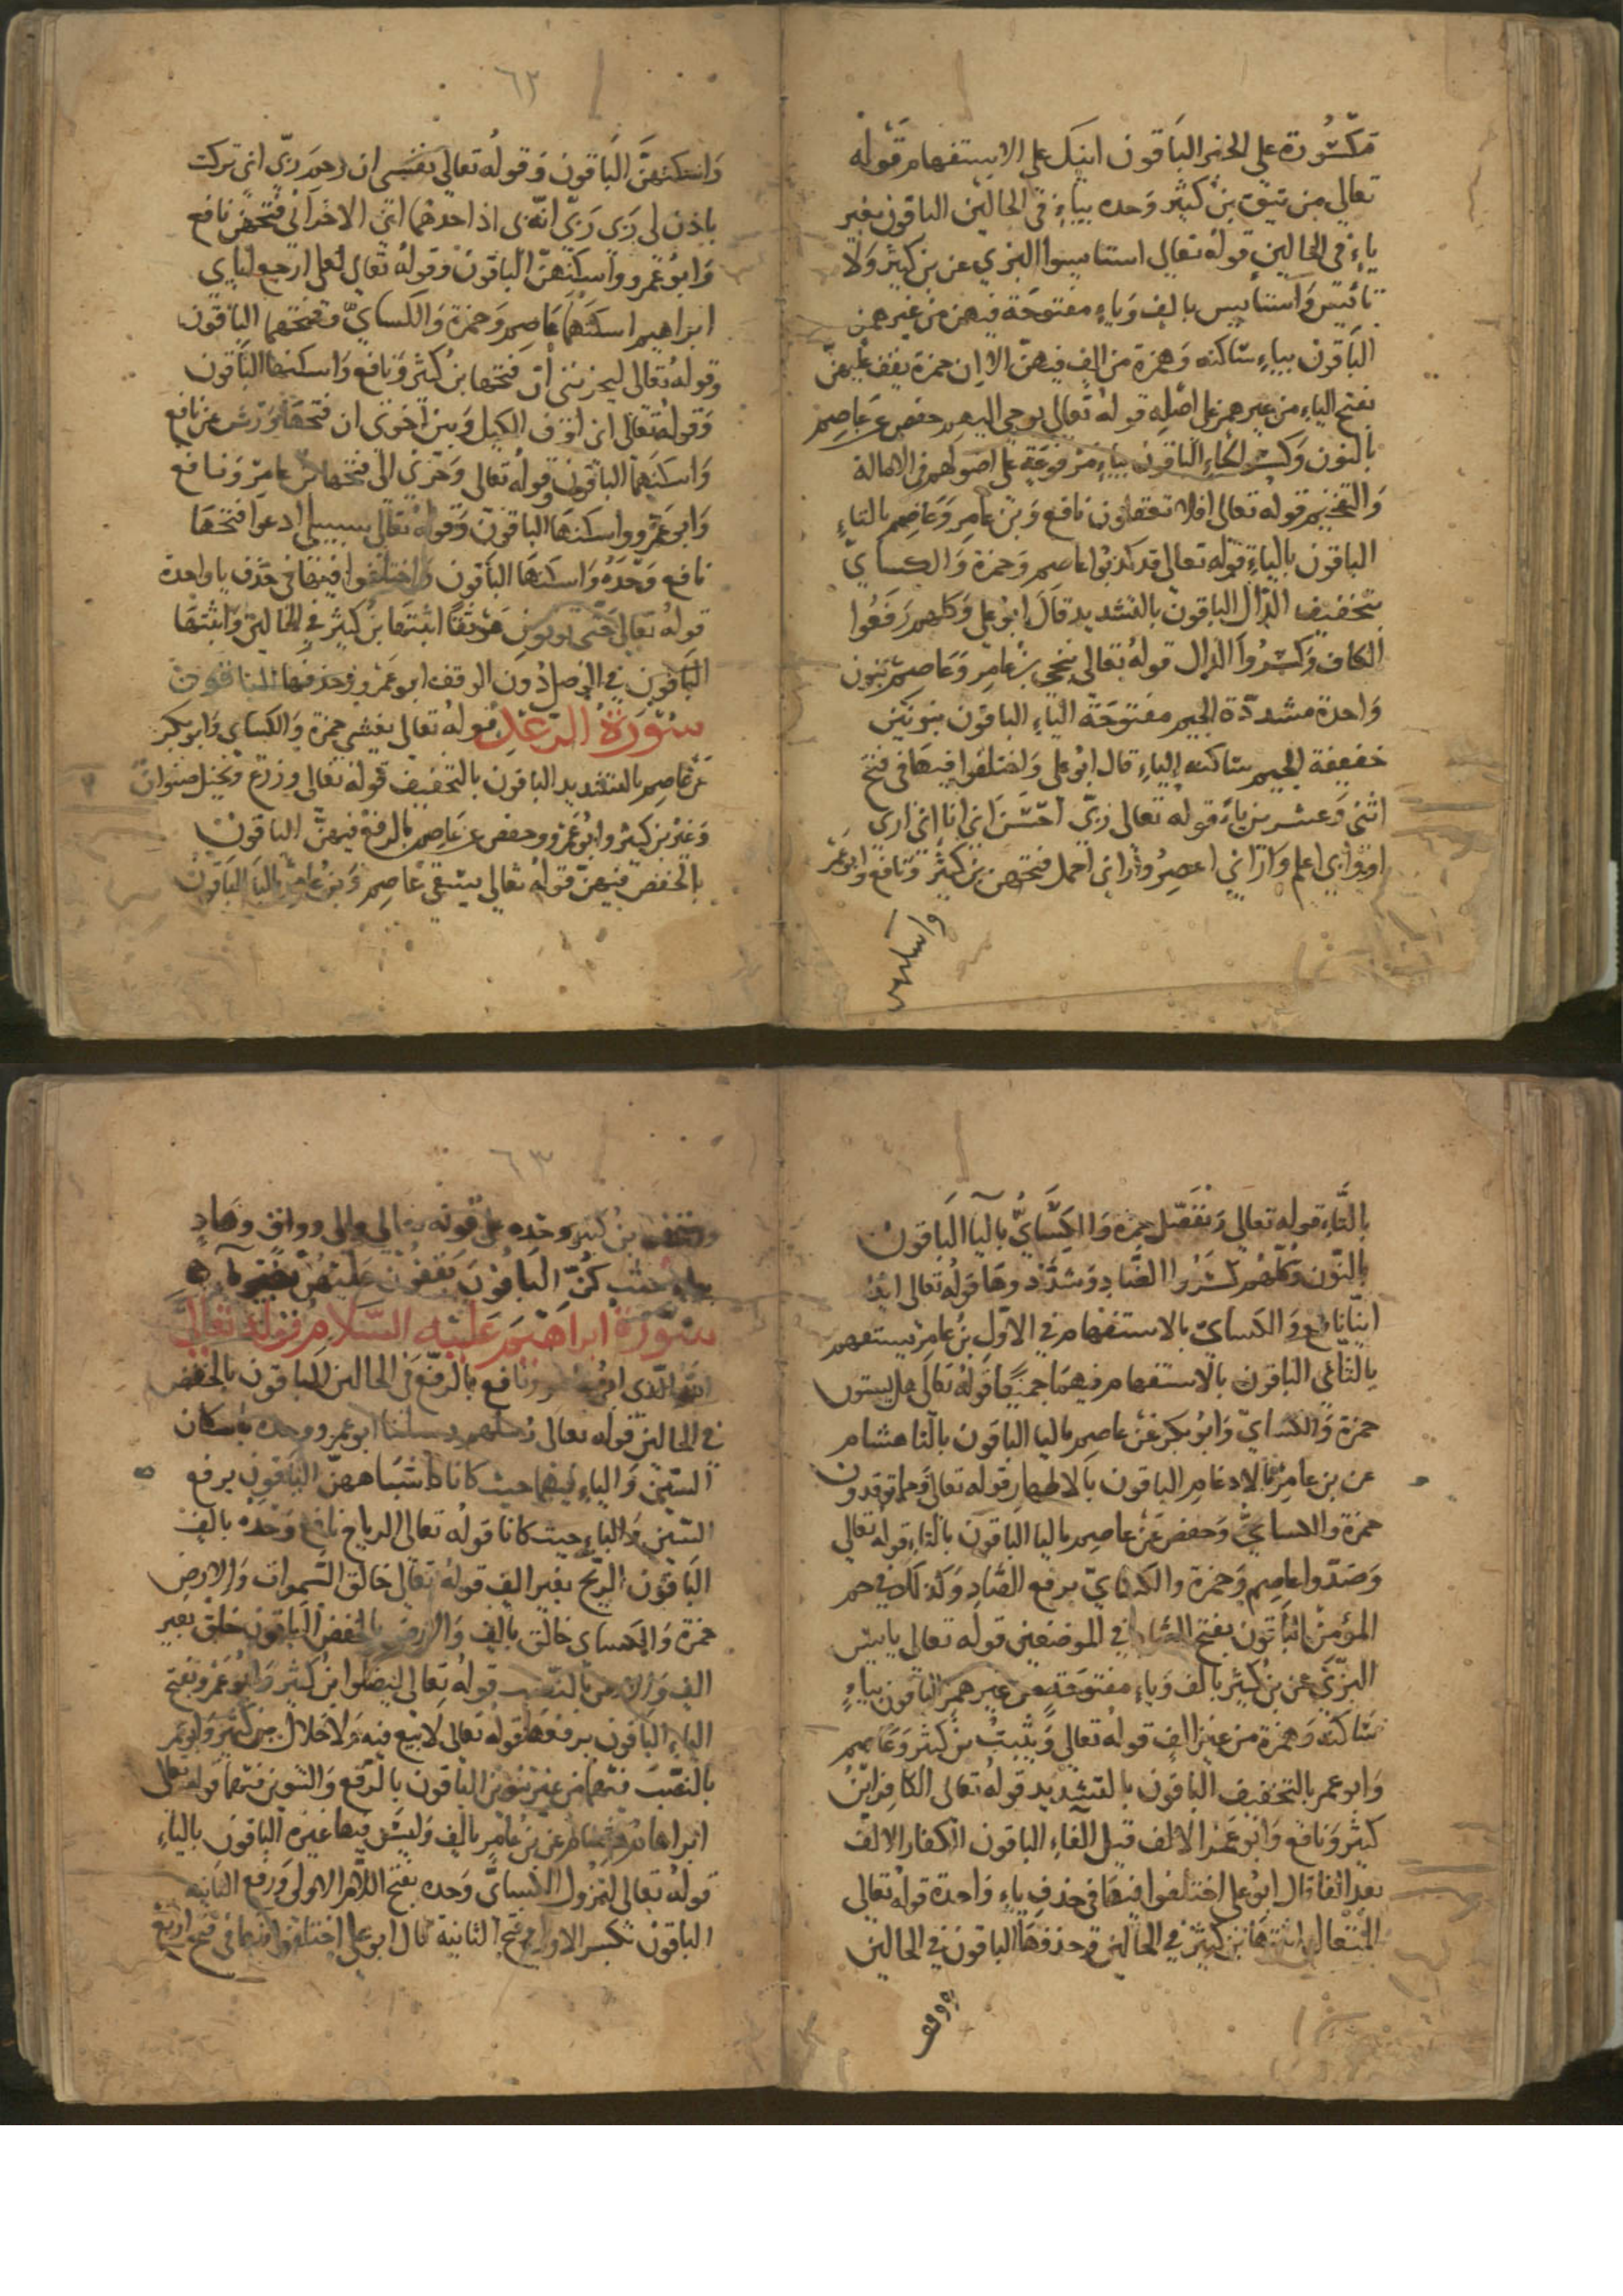 مكسورة على الخبر الباقون اينك على الاستفهام قوله
تعالى من يتق بن كثير وحده بياء في الحالين الباقون بغير
ياء في الحالين قوله تعالى استايسوا البزي عن بن كثير ولا
تايس واستايس بالف وياء مفتوحة فيهن من غير همز
الباقون بياء ساكنه وهمزة من الف فيهن الا ان حمزة يقف عليهن
بفتح الياء من غير همز على اصله قوله تعالى يوحي اليهم حفص عن عاصم
بالنون وكسر الحاء الباقون بياء مرفوعة على اصولهم في الامالة
والتفخيم قوله تعالى افلا تعقلون نافع وبن عامر وعاصم بالتاء
الباقون بالياء قوله تعالى قد كذبوا عاصم وحمزة والكساي
بتخفيف الذال الباقون بالتشديد قال ابو على وكلهم رفعوا
الكاف وكسروا الذال قوله تعالى ننجي بن عامر وعاصم بنون
واحدة مشددة الجيم مفتوحة الياء الباقون بنونين
خفيفة الجيم ساكنه الياء قال ابو على واختلفوا فيها في فتح
اثنى وعشرين ياء قوله تعالى ربي احسن اني انا اني ارى
اوفي اني اعلم واراني اعصر واراني احمل فتحهن بن كثير ونافع وابو عمر
واسكنهن
٦٢
واسكنهن الباقون وقوله تعالى نفسي ان رحم ربي اني تركت
ياذن لي ربي ربي انه ى اذ احدهما اني الاخر اني فتحهن نافع
وابو عمرو واسكنهن الباقون وقوله تعالى لعلي ارجع اباي
ابراهيم اسكنهما عاصم وحمزة والكساي وفتحهما الباقون
وقوله تعالى ليحزنني ان فتحها بن كثير ونافع واسكنها الباقون
وقوله تعالى اني اوف الكيل وبين اخوتي ان فتحها ورش عن نافع
واسكنهما الباقون وقوله تعالى وحزني الى فتحها بن عامر ونافع
وابو عمرو واسكنها الباقون وقوله تعالى سبيلي ادعوا فتحها
نافع وحده واسكنها الباقون واختلفوا فيها في حذف يا واحدة
قوله تعالى حتى توتون موثقا اثبتها بن كثير في الحالين واثبتها
في الوصل دون الوقف ابو عمرو وحذفها الباقون
سورة الرعد قوله تعالى يغشي حمزة والكساي وابو بكر
عن عاصم بالتشديد الباقون بالتخفيف قوله تعالى وزرع ونخيل صنوان
وغير بن كثير وابو عمرو وحفص عن عاصم بالرفع فيهن الباقون
بالخفض فيهن قوله تعالى يسقى عاصم وبن عامر باليا الباقون
بالتاء قوله تعالى ونفضل حمزة والكساي باليا الباقون
بالنون وكلهم كسروا الضاد وشددوها قوله تعالى ايذا
اينا نافع والكساي بالاستفهام في الاول بن عامر يستفهم
بالثاني الباقون بالاستفهام فيهما جميعا قوله تعالى هل يستوى
حمزة والكساي وابو بكر عن عاصم باليا الباقون بالتا هشام
عن بن عامر بالادغام الباقون بالاظهار قوله تعالى ومما توقدون
حمزة والكساي وحفص عن عاصم باليا الباقون بالتاء قوله تعالى
وصدوا عاصم وحمزة والكساي برفع الصاد وكذلك في حم
المؤمن الباقون بفتح الصاد في الموضعين قوله تعالى يايس
البزي عن بن كثير بالف وياء مفتوحة من غير همز الباقون بياء
ساكنه وهمزة من غير الف قوله تعالى ويثبت بن كثير وعاصم
وابو عمر بالتخفيف الباقون بالتشديد قوله تعالى الكافر ابن
كثير ونافع وابو عمر الالف قبل الفاء الباقون الكفار الالف
بعد الفا قال ابو على اختلفوا فيها في حذف ياء واحدة قوله تعالى
المتعال اثبتها بن كثير في الحالين وحذفها الباقون في الحالين
ووقف
٦٣
ووقف بن كثير وحده على قوله تعالى والى وواق وهاد
بياء حيث كن الباقون يقفون عليهن بغير ياء
سورة ابراهيم عليه السلام قوله تعالى
الله الذي بن عامر ونافع بالرفع في الحالين الباقون بالخفض
في الحالين قوله تعالى رسلهم رسلنا ابو عمرو وحده باسكان
السين والباء فيهما حيث كانا واشباههن الباقون برفع
السين والباء حيث كانا قوله تعالى الرياح نافع وحده بالف
الباقون الريح بغير الف قوله تعالى خالق السموات والارض
حمزة والكساي خالق بالف والارض بالخفض الباقون خلق بغير
الف والارض بالنصب قوله تعالى ليضلوا بن كثير وابو عمرو بفتح
الياء الباقون برفعها قوله تعالى لا بيع فيه ولا خلال بن كثير وابو عمر
بالنصب فيهما من غير تنوين الباقون بالرفع والتنوين فيهما قوله تعالى
ابراهام هشام عن بن عامر بالف وليس فيها غيره الباقون بالياء
قوله تعالى لتزول الكساي وحده بفتح اللام الاولى ورفع الثانيه
الباقون بكسر الاولى وفتح الثانية قال ابو على اختلفوا فيها في فتح اربع